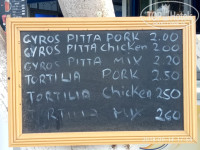 GYROS PITTA PORK 2.00
GYROS PITTA Chicken 200
GYROS PITTA MIX 2.20
TORTILIA PORK 2.50
TORTILIA Chicken 250
TORTILIA MIX 260